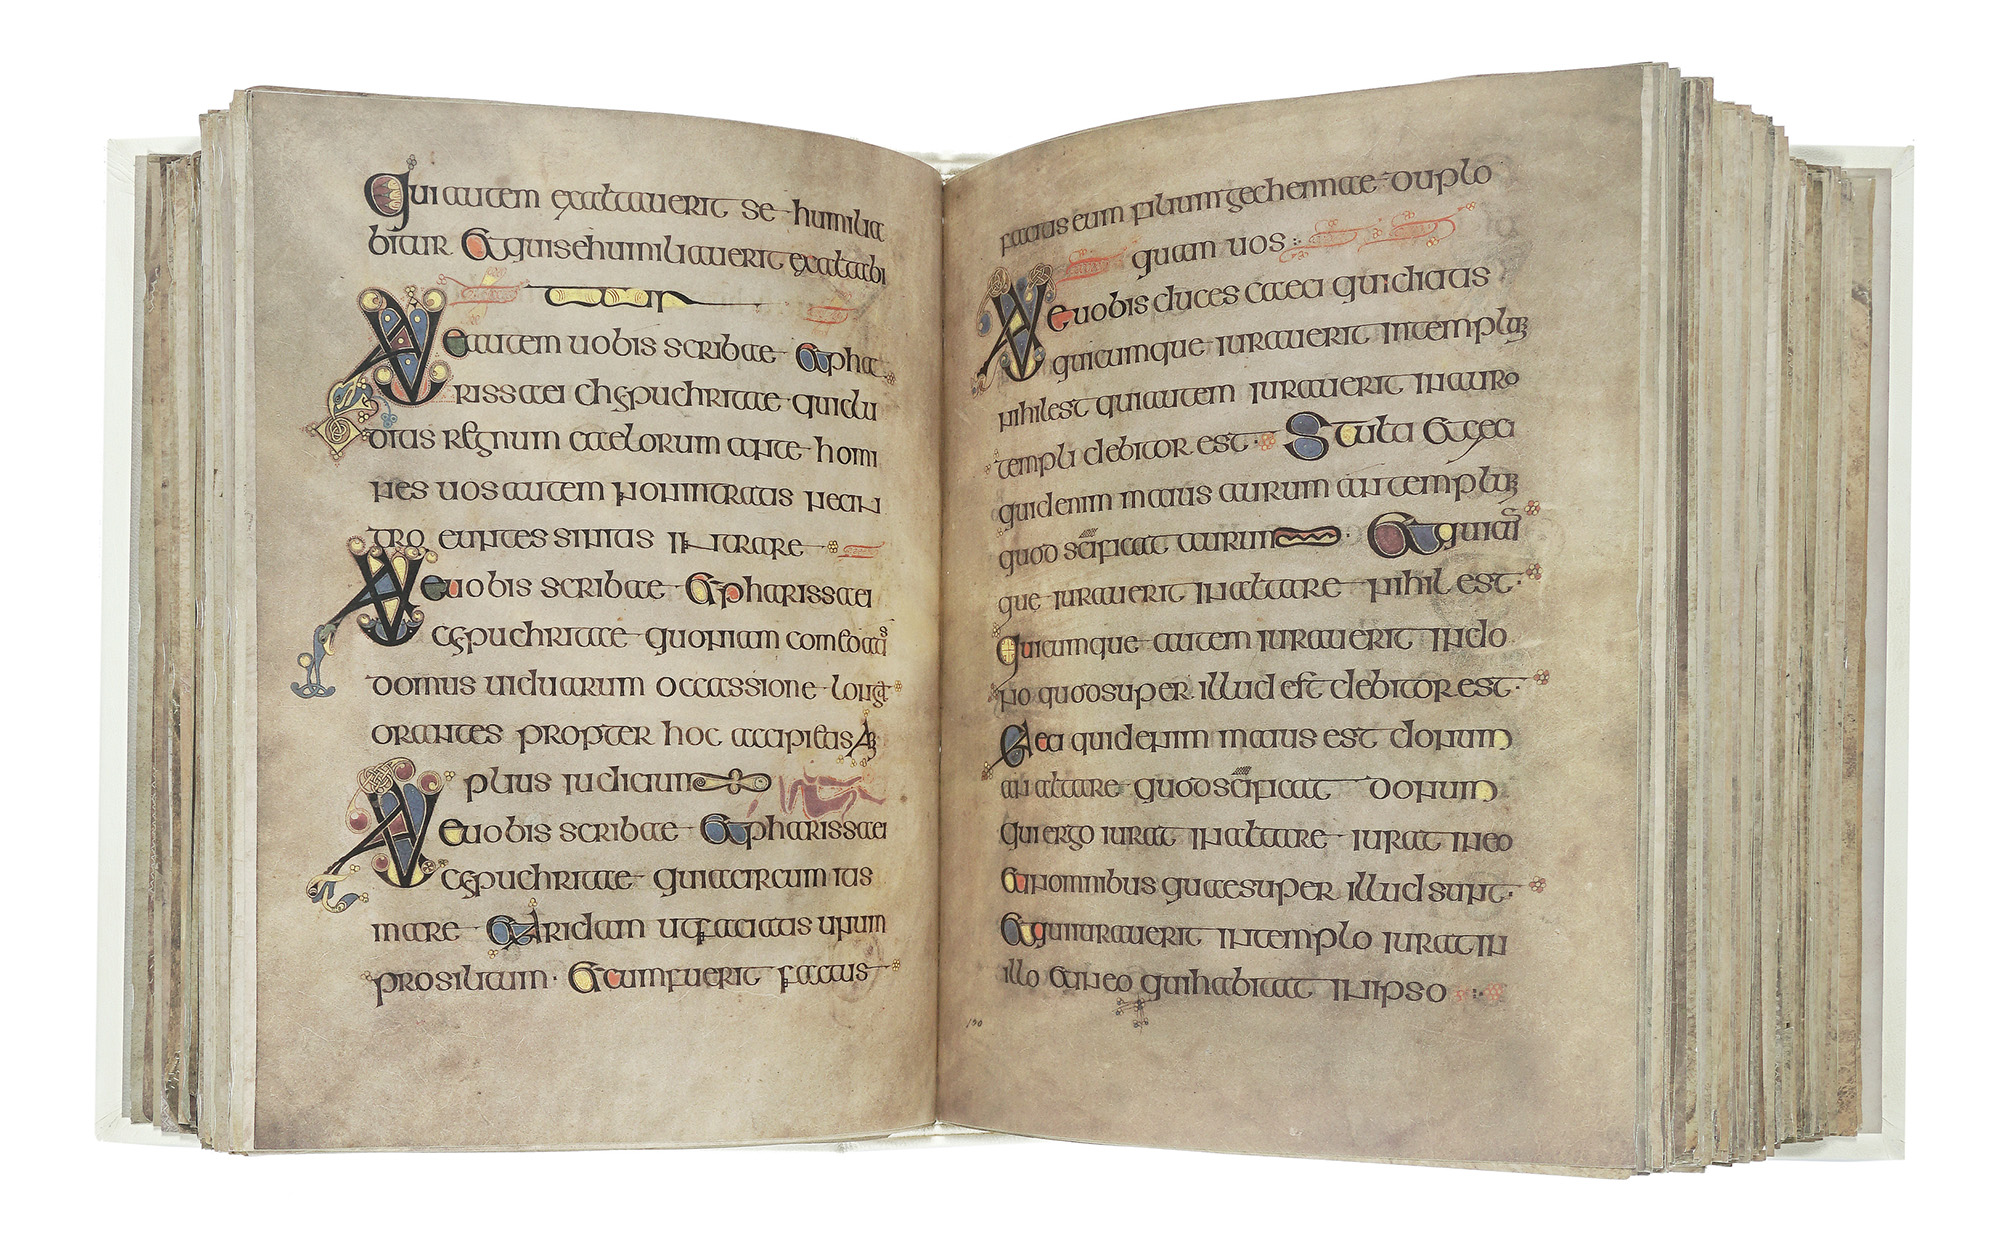 Qui autem exaltauerit se humilia
bitur & qui se humiliauerit exaltabi
tur
Ue autem uobis scribae & pha
rissaei chypuchritae qui clu
ditis regnum caelorum ante homi
nes uos autem non intratis nec in
tro euntes sinitis intrare
Ue uobis scribae & pharissaei
chypuchritae quoniam comeditis
domus uiduarum occassione longa
orantes propter hoc accipietis am
plius iudicium
Ue uobis scribae & pharissaei
chypuchritae quia circumitis
mare & aridam ut faciatis unum
prosilitum · & cum fuerit factus
facitis eum filium gechennae duplo
quam uos
Ue uobis duces caeci qui dicitis
quicumque iurauerit in templum
nihil est qui autem iurauerit in auro
templi debitor est · Stulti & caeci
quid enim maius aurum an templum
quod scificat aurum · & quicum
que iurauerit in altare nihil est ·
quicumque autem iurauerit in do
no quod super illud est debitor est ·
Caeci quid enim maius est donum
an altare quod scificat donum
qui ergo iurat in altare iurat in eo
& in omnibus quae super illud sunt ·
& qui iurauerit in templo iurat in
illo & in eo qui habitat in ipso
190